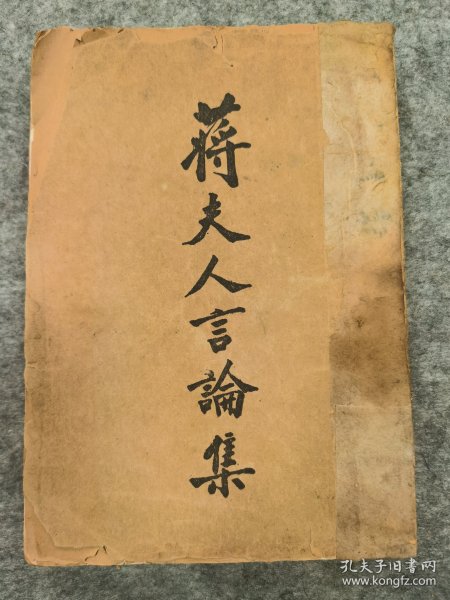 蔣夫人言論集
孔夫子旧书网
www.kongfz.com